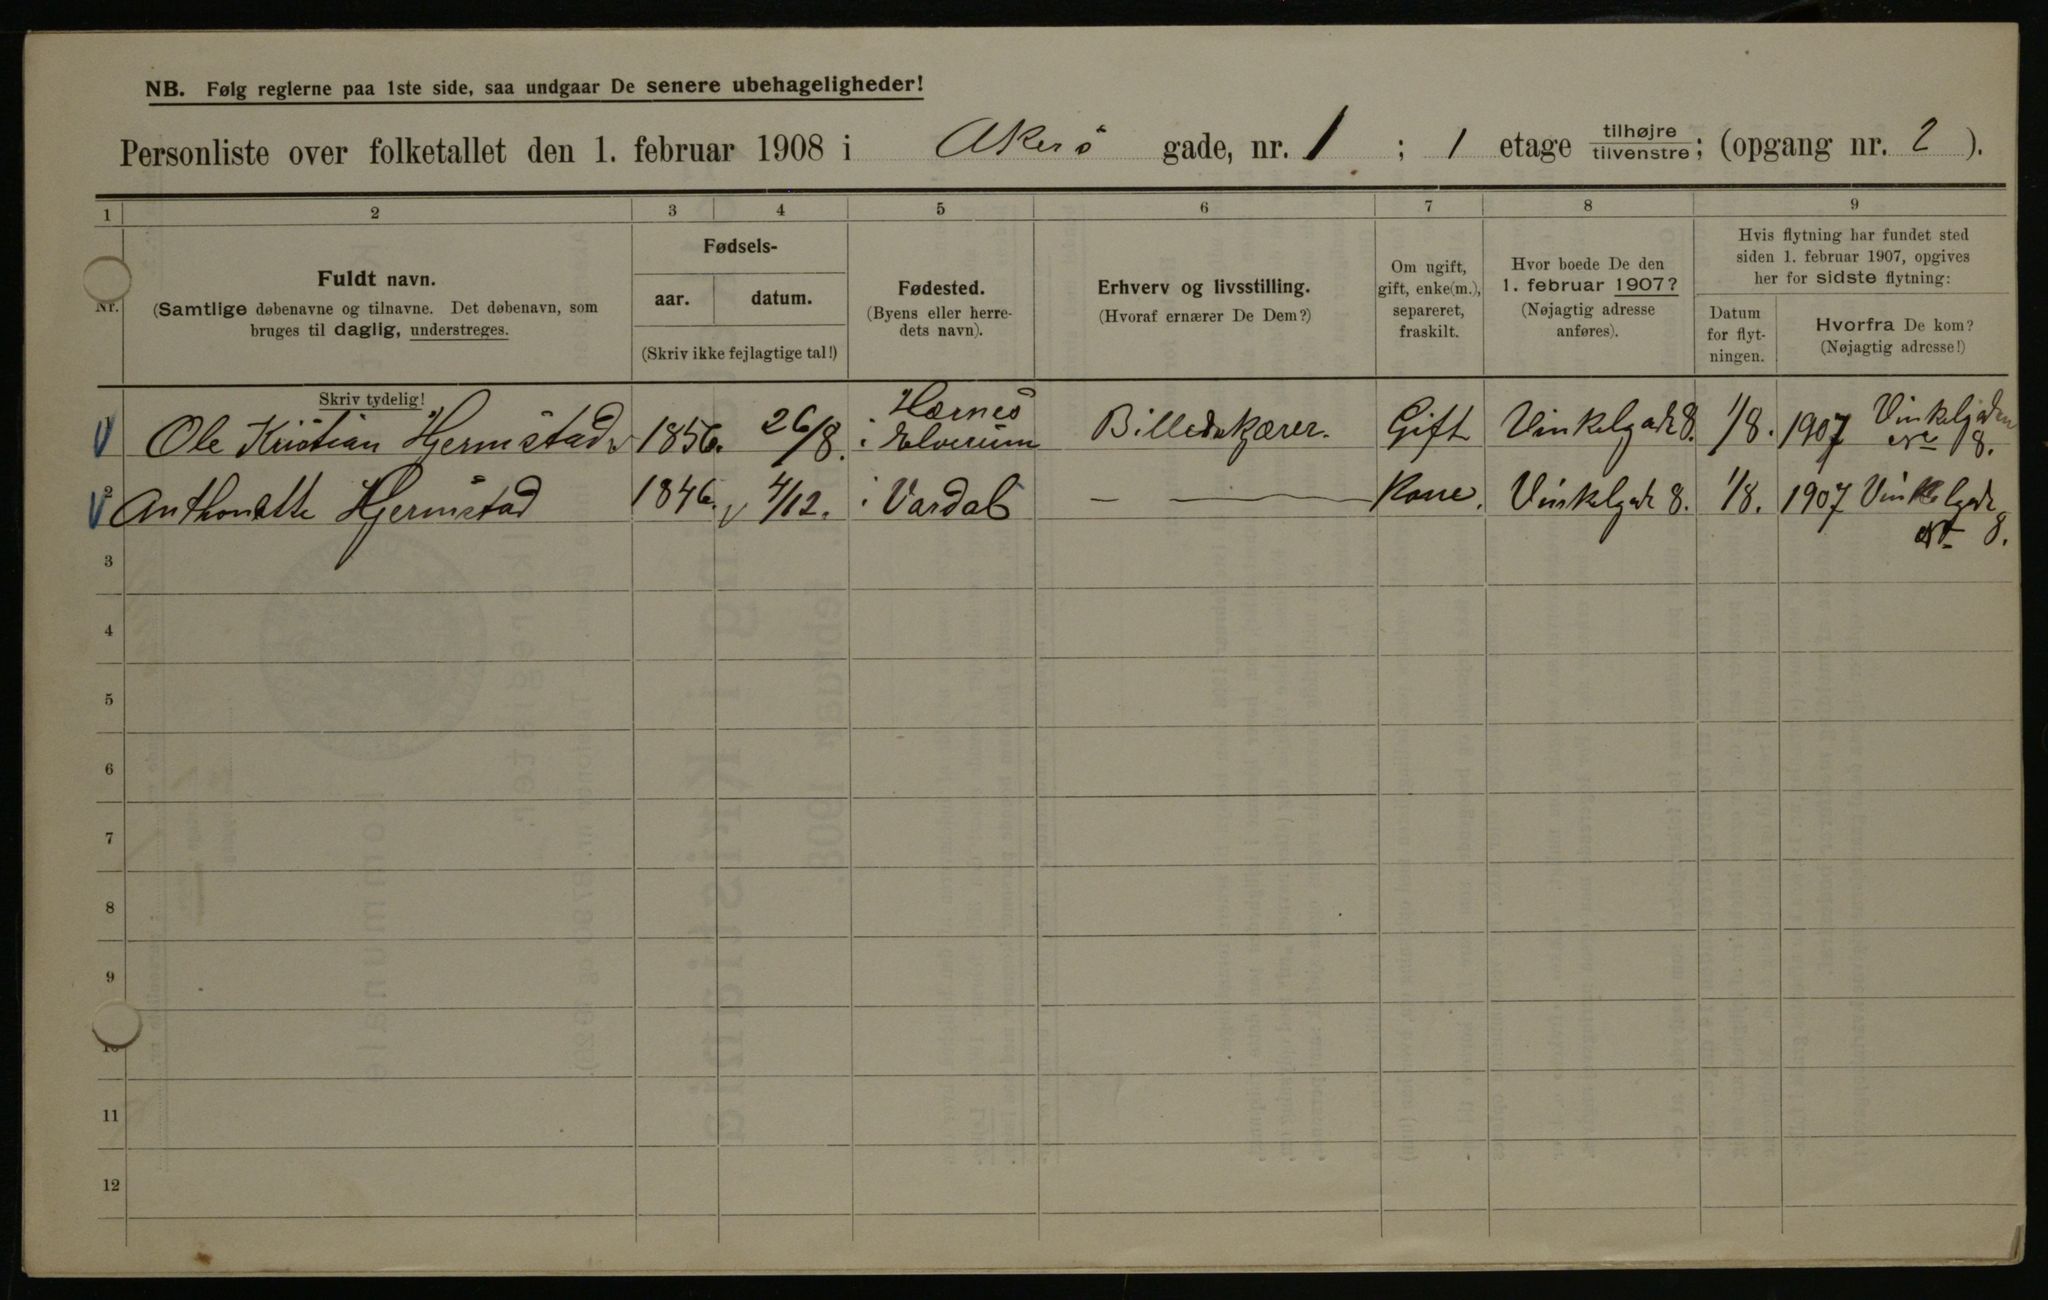 NB. Følg reglerne paa 1ste side, saa undgaar De senere ubehageligheder!
Personliste over folketallet den 1. februar 1908 i Akers gade, nr. 1 ; 1 etage tilhøjre tilvenstre; (opgang nr. 2 ).
1 2 3 4 5 6 7 8 9
Nr.
Fuldt navn.
(Samtlige døbenavne og tilnavne. Det døbenavn, som
bruges til daglig, understreges.
Skriv tydelig!
Fødsels-
aar. datum.
(Skriv ikke fejlagtige tal!)
Fødested.
(Byens eller herre-
dets navn).
Erhverv og livsstilling.
(Hvoraf ernærer De Dem?)
Om ugift,
gift, enke(m.),
separeret,
fraskilt.
Hvor boede De den
1. februar 1907?
(Nøjagtig adresse
anføres).
Hvis flytning har fundet sted
siden 1. februar 1907, opgives
her for sidste flytning:
Datum
for flyt-
ningen.
Hvorfra De kom?
(Nøjagtig adresse!)
Ole Kristian Hjermstad 1856. 26/8. Hærnes i Elverum Billedskjærer. Gift Vinkelgade 8. 1/8. 1907 Vinkelgaden 8.
2 Anthonette Hjermstad 1846. 4/12. i Vardal — — Kone. Vinkelgade 8. 1/8. 1907 Vinkelgade 8.
3
4
5
6
7
8
9
10
11
12